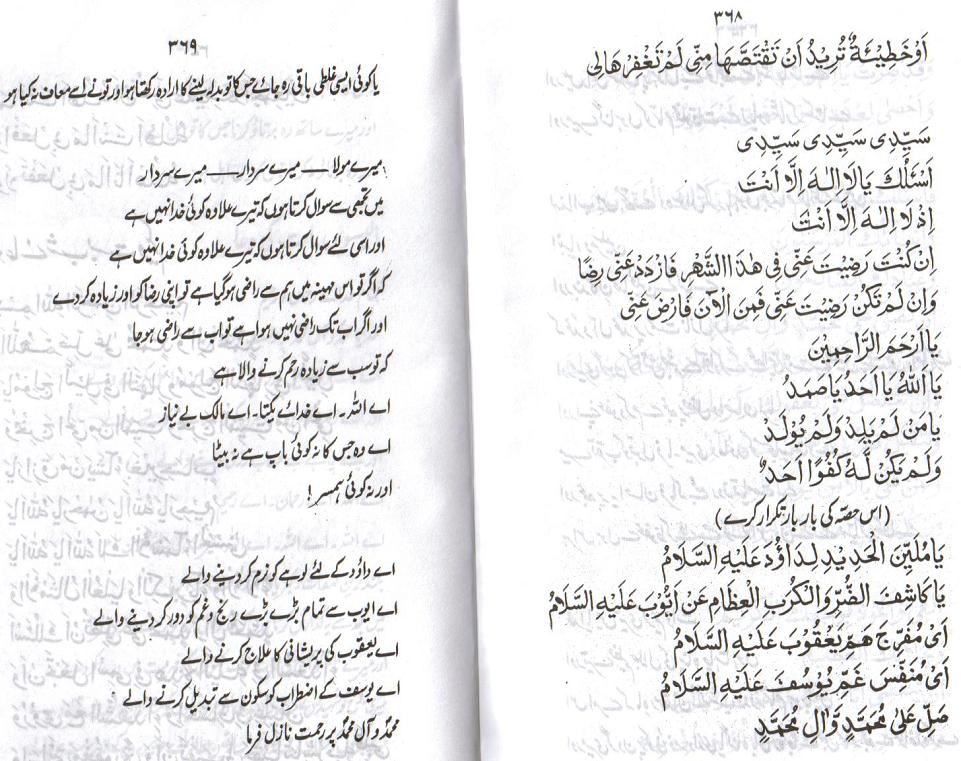 ۳۶۸
اَوْ خَطِيْئَةٌ تُرِيْدُ اَنْ تَقْتَصَّهَا مِنِّى لَمْ تَغْفِرْهَالِى
سَيِّدِى سَيِّدِى سَيِّدِى
اَسْئَلُكَ يَا لَا اِلٰهَ اِلَّا اَنْتَ
اِذْ لَا اِلٰهَ اِلَّا اَنْتَ
اِنْ كُنْتَ رَضِيْتَ عَنِّى فِى هٰذَا الشَّهْرِ فَازْدَدْ عَنِّى رِضًا
وَاِنْ لَمْ تَكُنْ رَضِيْتَ عَنِّى فَمِنَ الْاٰنَ فَارْضَ عَنِّى
يَا اَرْحَمَ الرَّاحِمِيْنَ
يَا اَللهُ يَا اَحَدُ يَا صَمَدُ
يَا مَنْ لَمْ يَلِدْ وَلَمْ يُوْلَدْ
وَلَمْ يَكُنْ لَّهُ كُفُوًا اَحَدٌ
(اس حصّہ کی بار بار تکرار کرے)
يَا مُلَيِّنَ الْحَدِيْدِ لِدَاوُدَ عَلَيْهِ السَّلَامُ
يَا كَاشِفَ الضُّرِّ وَالْكُرَبِ الْعِظَامِ عَنْ اَيُّوْبَ عَلَيْهِ السَّلَامُ
اَىْ مُفَرِّجَ هَمِّ يَعْقُوْبَ عَلَيْهِ السَّلَامُ
اَىْ مُنَفِّسَ غَمِّ يُوْسُفَ عَلَيْهِ السَّلَامُ
صَلِّ عَلىٰ مُحَمَّدٍ وَّاٰلِ مُحَمَّدٍ
۳۶۹
یا کوئی ایسی غلطی باقی رہ جائے جس کا تو بدلہ لینے کا ارادہ رکھتا ہو اور تو نے اسے معاف نہ کیا ہو
میرے مولا — میرے سردار — میرے سردار
میں تجھی سے سوال کرتا ہوں کہ تیرے علاوہ کوئی خدا نہیں ہے
اور اسی لئے سوال کرتا ہوں کہ تیرے علاوہ کوئی خدا نہیں ہے
کہ اگر تو اس مہینہ میں ہم سے راضی ہو گیا ہے تو اپنی رضا کو اور زیادہ کر دے
اور اگر اب تک راضی نہیں ہوا ہے تو اب سے راضی ہو جا
کہ تو سب سے زیادہ رحم کرنے والا ہے
اے اللہ۔ اے خدائے یکتا۔ اے مالک بے نیاز
اے وہ جس کا نہ کوئی باپ ہے نہ بیٹا
اور نہ کوئی ہمسر!
اے داؤد کے لئے لوہے کو نرم کر دینے والے
اے ایوب سے تمام بڑے بڑے رنج و غم کو دور کر دینے والے
اے یعقوب کی پریشانی کا علاج کرنے والے
اے یوسف کے اضطراب کو سکون سے تبدیل کرنے والے
محمدؐ و آل محمدؐ پر رحمت نازل فرما